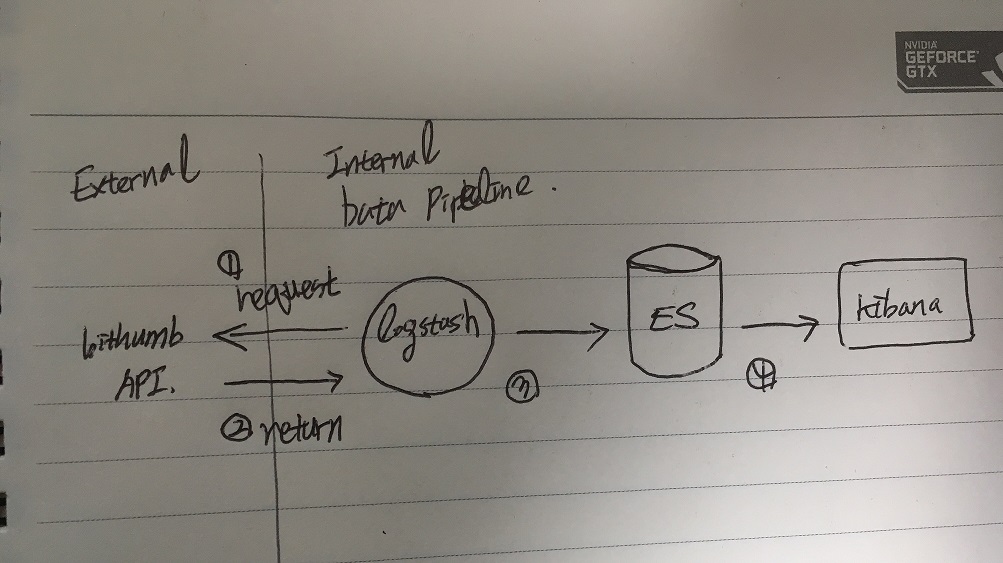 NVIDIA
GEFORCE
GTX
External
Internal
Data Pipeline.
① request
bithumb
API.
② return
logstash
③
ES
④
kibana